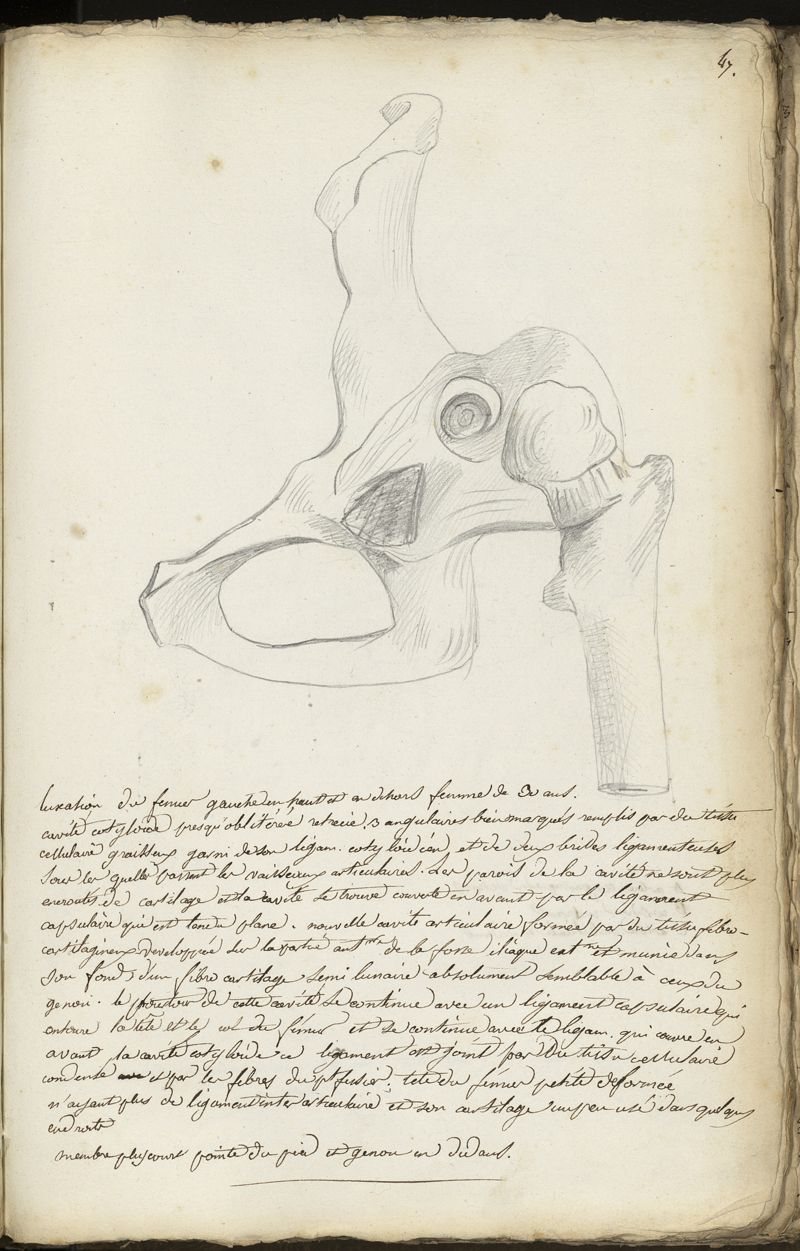 47.
luxation du femur gauche en haut et en dehors femme de 30 ans.
cavité cotyloide presqu'oblitérée retrecie, 3 angulaires bien marqués remplis par du tissu
cellulaire graisseux garni de son ligam. cotyloidien, et de deux brides ligamenteuses
sous les quelles passent les vaisseaux articulaires. Les parois de la cavité ne sont plus
encroutés de cartilage et la cavité se trouve couverte en avant par le ligament
capsulaire qui est tendu plane. nouvelle cavité articulaire formée par du tissu fibro-
cartilagineux developpée sur la partie antre de la fosse iliaque extne et munie dans
son fond d'un fibro cartilage semi lunaire absolument semblable à ceux du
genou. le pourtour de cette cavité se continue avec un ligament capsulaire qui
entoure la tête et le col du fémur et se continue avec le ligam. qui couvre en
avant la cavité cotyloide ce ligament est joint par du tissu cellulaire
condensé et par les fibres du pt fessier; tête du fémur petite deformée
n'ayant plus de ligament inter articulaire et son cartilage un peu usé dans quelques
endroits
membre plus court pointe du pied et genou en dedans.